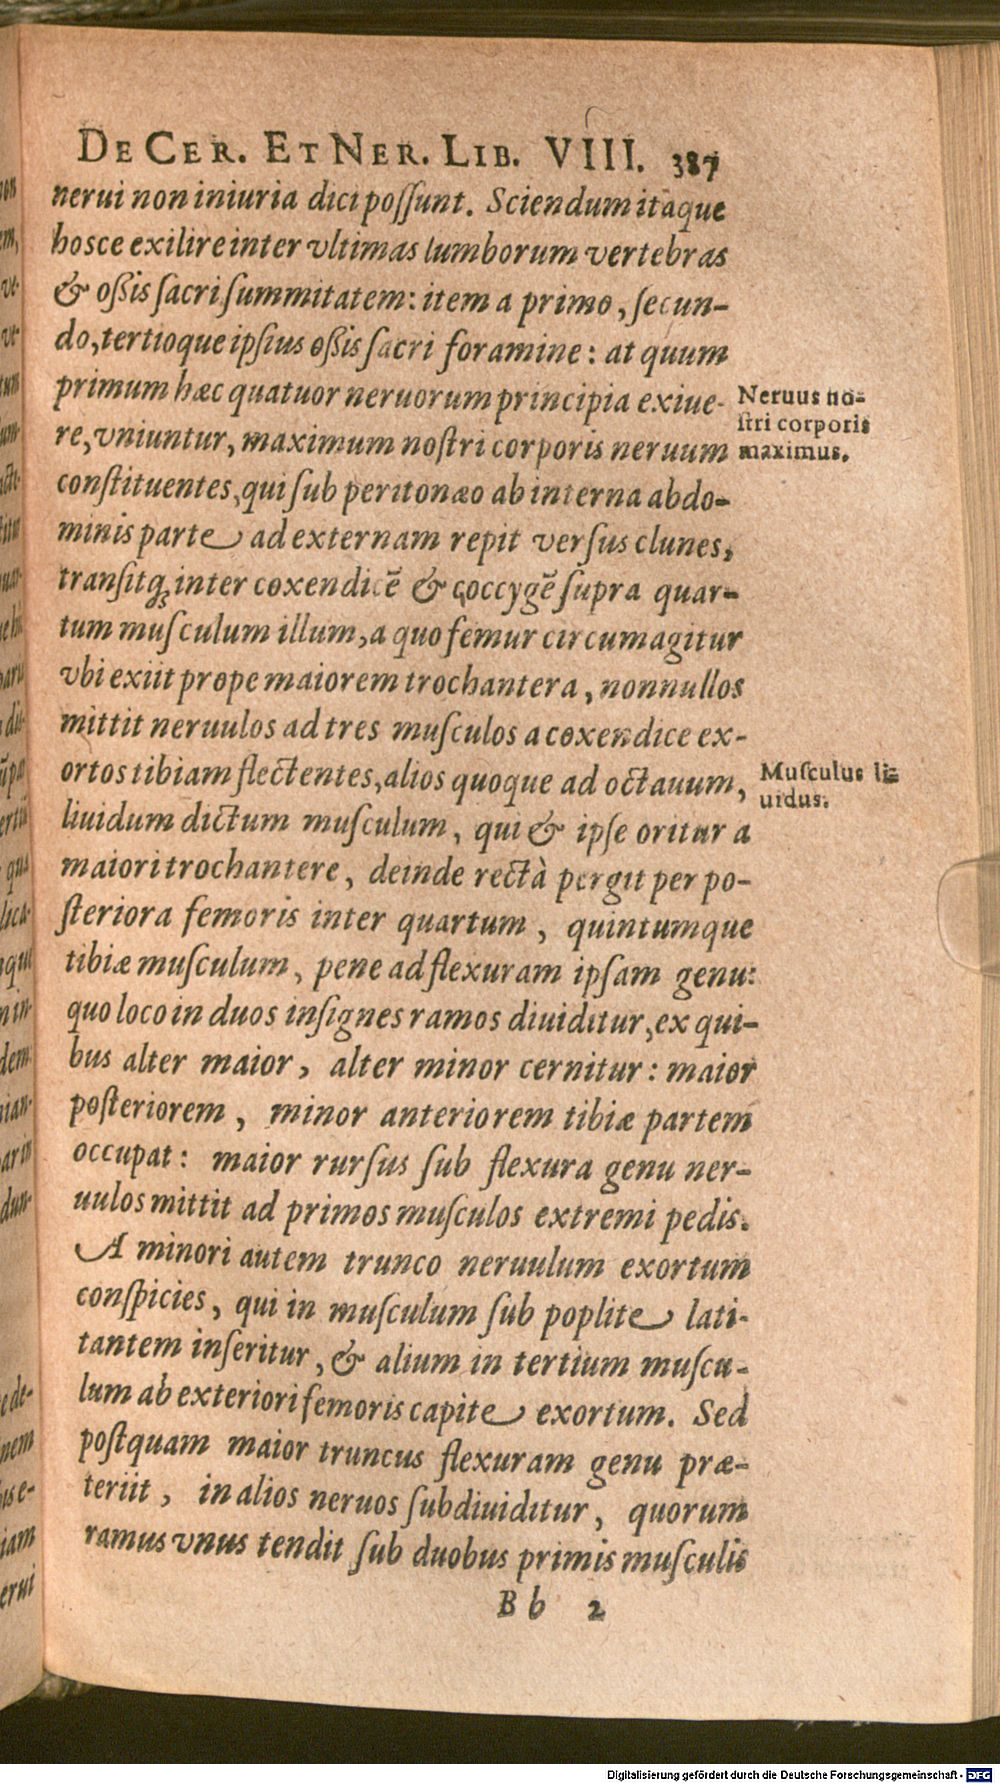 DE CER. ET NER. LIB. VIII. 387
nerui non iniuria dici poſſunt. Sciendum itaque
hosce exilire inter vltimas lumborum vertebras
& oßis ſacri ſummitatem: item a primo, ſecun-
do, tertioque ipſius oßis ſacri foramine: at quum
primum hæc quatuor neruorum principia exiue-
re, vniuntur, maximum noſtri corporis neruum
conſtituentes, qui ſub peritonæo ab interna abdo-
minis parte ad externam repit verſus clunes,
tranſitq́; inter coxendicē & coccygē ſupra quar-
tum muſculum illum, a quo femur circumagitur
vbi exiit prope maiorem trochantera, nonnullos
mittit neruulos ad tres muſculos a coxendice ex-
ortos tibiam flectentes, alios quoque ad octauum,
liuidum dictum muſculum, qui & ipſe oritur a
maiori trochantere, deinde rectà pergit per po-
ſteriora femoris inter quartum, quintumque
tibiæ muſculum, pene ad flexuram ipſam genu:
quo loco in duos inſignes ramos diuiditur, ex qui-
bus alter maior, alter minor cernitur: maior
poſteriorem, minor anteriorem tibiæ partem
occupat: maior rurſus ſub flexura genu ner-
uulos mittit ad primos muſculos extremi pedis.
A minori autem trunco neruulum exortum
conſpicies, qui in muſculum ſub poplite lati-
tantem inſeritur, & alium in tertium muſcu-
lum ab exteriori femoris capite exortum. Sed
poſtquam maior truncus flexuram genu præ-
teriit, in alios neruos ſubdiuiditur, quorum
ramus vnus tendit ſub duobus primis muſculis
Bb 2
Neruus no-
ſtri corporis
maximus.
Muſculus li-
uidus.
Digitalisierung gefördert durch die Deutsche Forschungsgemeinschaft - DFG